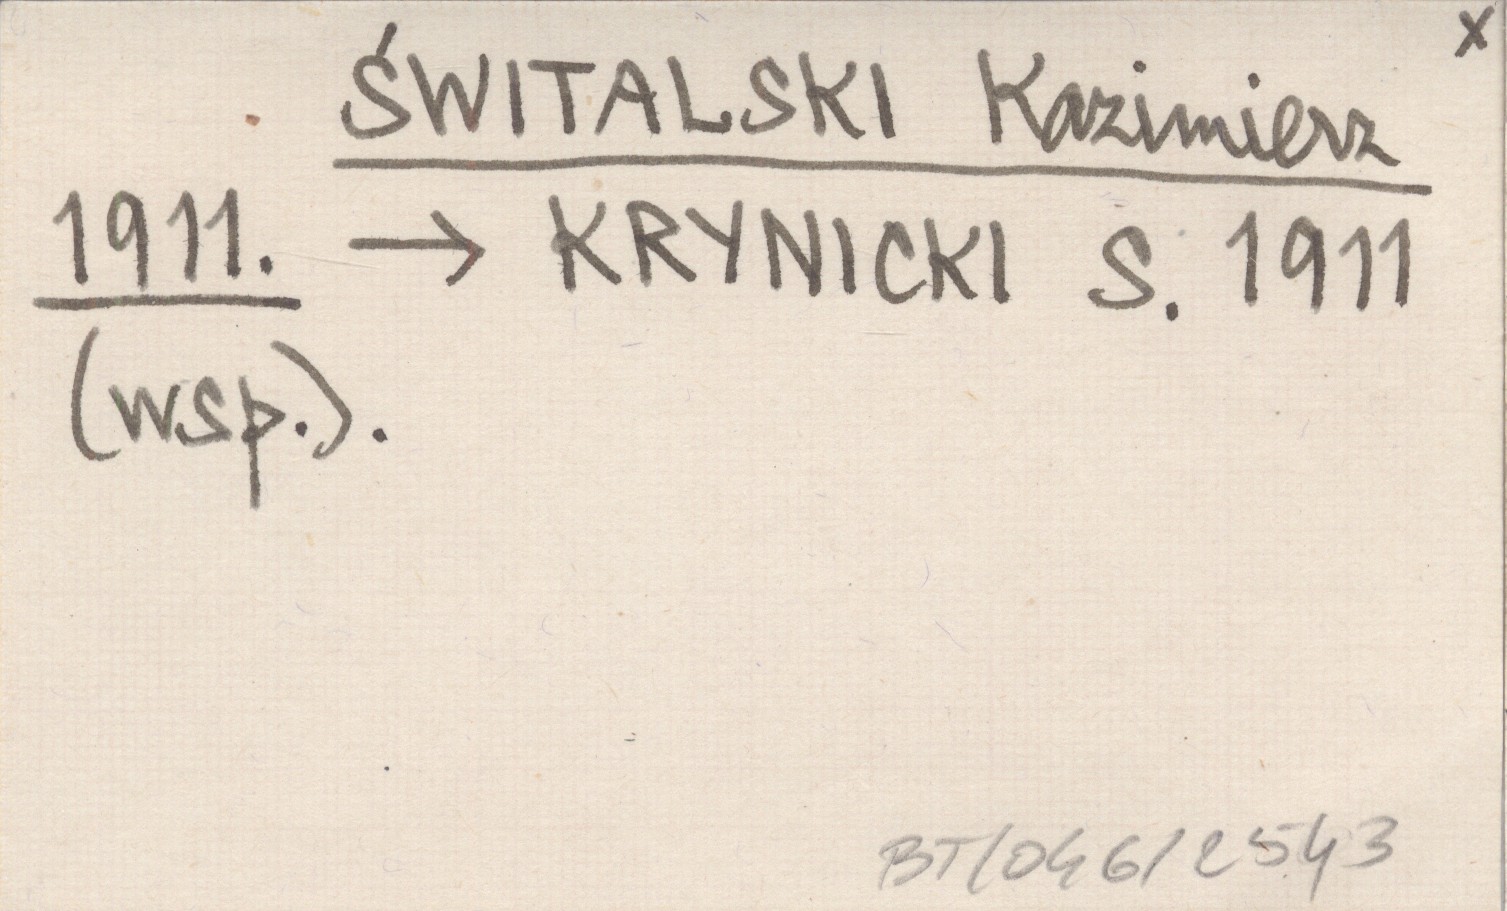 x
ŚWITALSKI Kazimierz
1911. → KRYNICKI S. 1911
(wsp.).
BT/046/2543